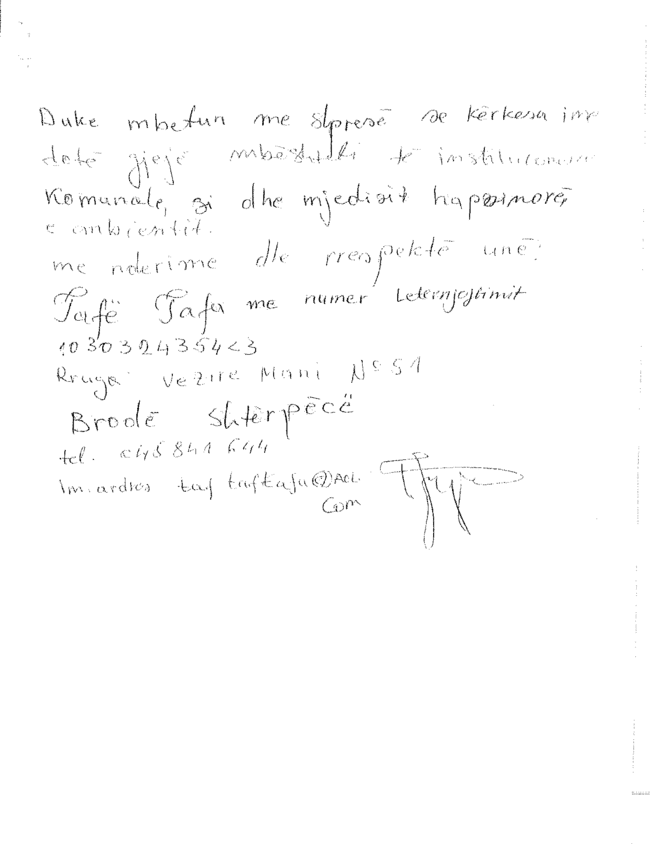 Duke mbetun me shpresë se kërkesa ime
dotë gjejë mbështetki të institucionev
Komunale, si dhe mjedisit hapsinorë,
e ambientit.
me nderime dhe rrespektë unë:
Tafë Tafa me numer Leternjoftimit
Rruga Vezire Mani Nº 51
Brodë shtërpëcë
tel. 045 841 644
Com